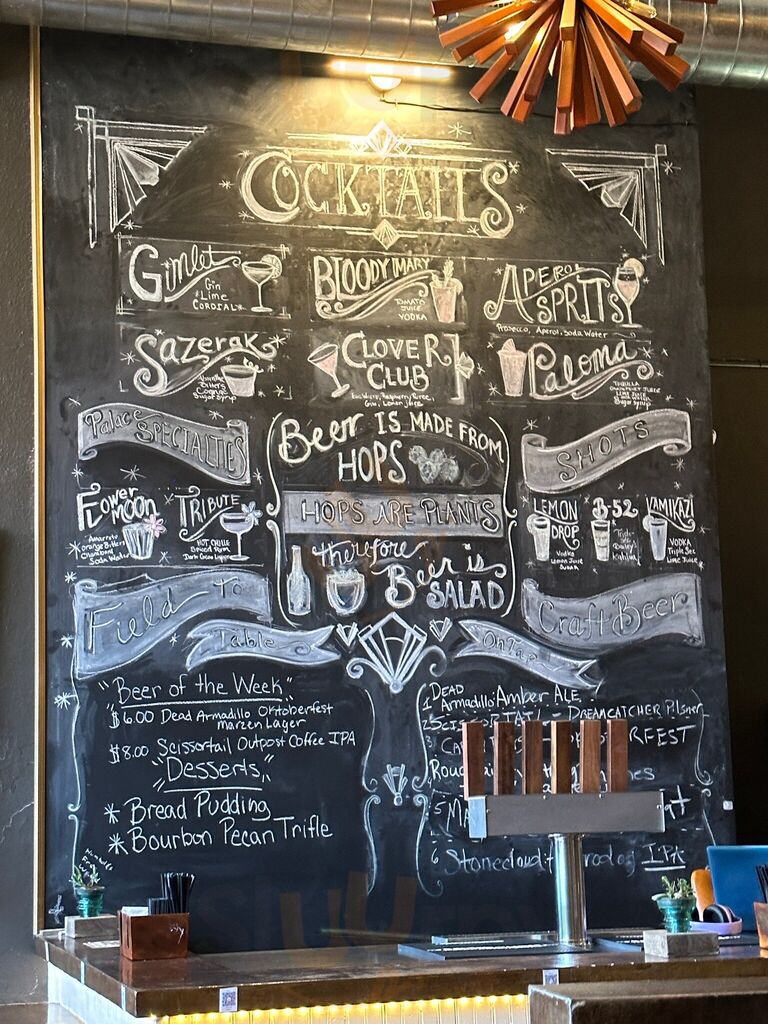 COCKTAILS
Gimlet
Gin
Lime
CORDIAL
BLOODY MARY
TOMATO
JUICE
VODKA
APEROL
SPRITS
Prosecco, Aperol, Soda Water
SAZERAK
Absinthe
Bitters
Cognac
Sugar Syrup
CLOVER
CLUB
Egg White, Raspberry Puree,
Gin, Lemon Juice
Paloma
TEQUILA
GRAPEFRUIT JUICE
LIME JUICE
Sugar Syrup
Palace SPECIALTIES
Beer IS MADE FROM
HOPS
HOPS ARE PLANTS
therefore
Beer is
SALAD
SHOTS
Flower
MOON
Amaretto
Orange Bitters
Soda Water
TRIBUTE
Spiced Rum
LEMON
DROP
Vodka
Lemon Juice
SUGAR
B-52
Kahlua
KAMIKAZI
VODKA
Triple Sec
Lime Juice
Field To
Table
Craft Beer
On Tap
"Beer of the Week"
$6.00 Dead Armadillo Oktoberfest
Marzen Lager
$8.00 Scissortail Outpost Coffee IPA
"Desserts"
* Bread Pudding
* Bourbon Pecan Trifle
1 DEAD
Armadillo: Amber ALE
2 SCISSORTAIL - DREAMCATCHER Pilsner
3
RFEST
5 MA
6 Stonecloud IPA